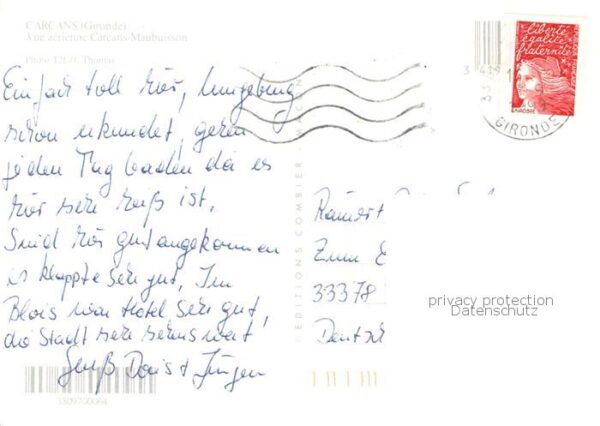 CARCANS (Gironde)
Vue aérienne Carcans-Maubuisson
Photo T2L/J. Thomas
Einfach toll hier, Umgebung
schon erkundet, gehen
jeden Tag baden da es
hier sehr heiß ist.
Sind hier gut angekommen
es klappte sehr gut, Im
Blois war Hotel sehr gut,
die Stadt sehr sehenswert
Gruß Doris + Jürgen
3809700064
EDITIONS COMBIER MACON
liberté
égalité
fraternité
LA POSTE
GIRONDE
Rainer
Zum E
33378
Deutsch
privacy protection
Datenschutz